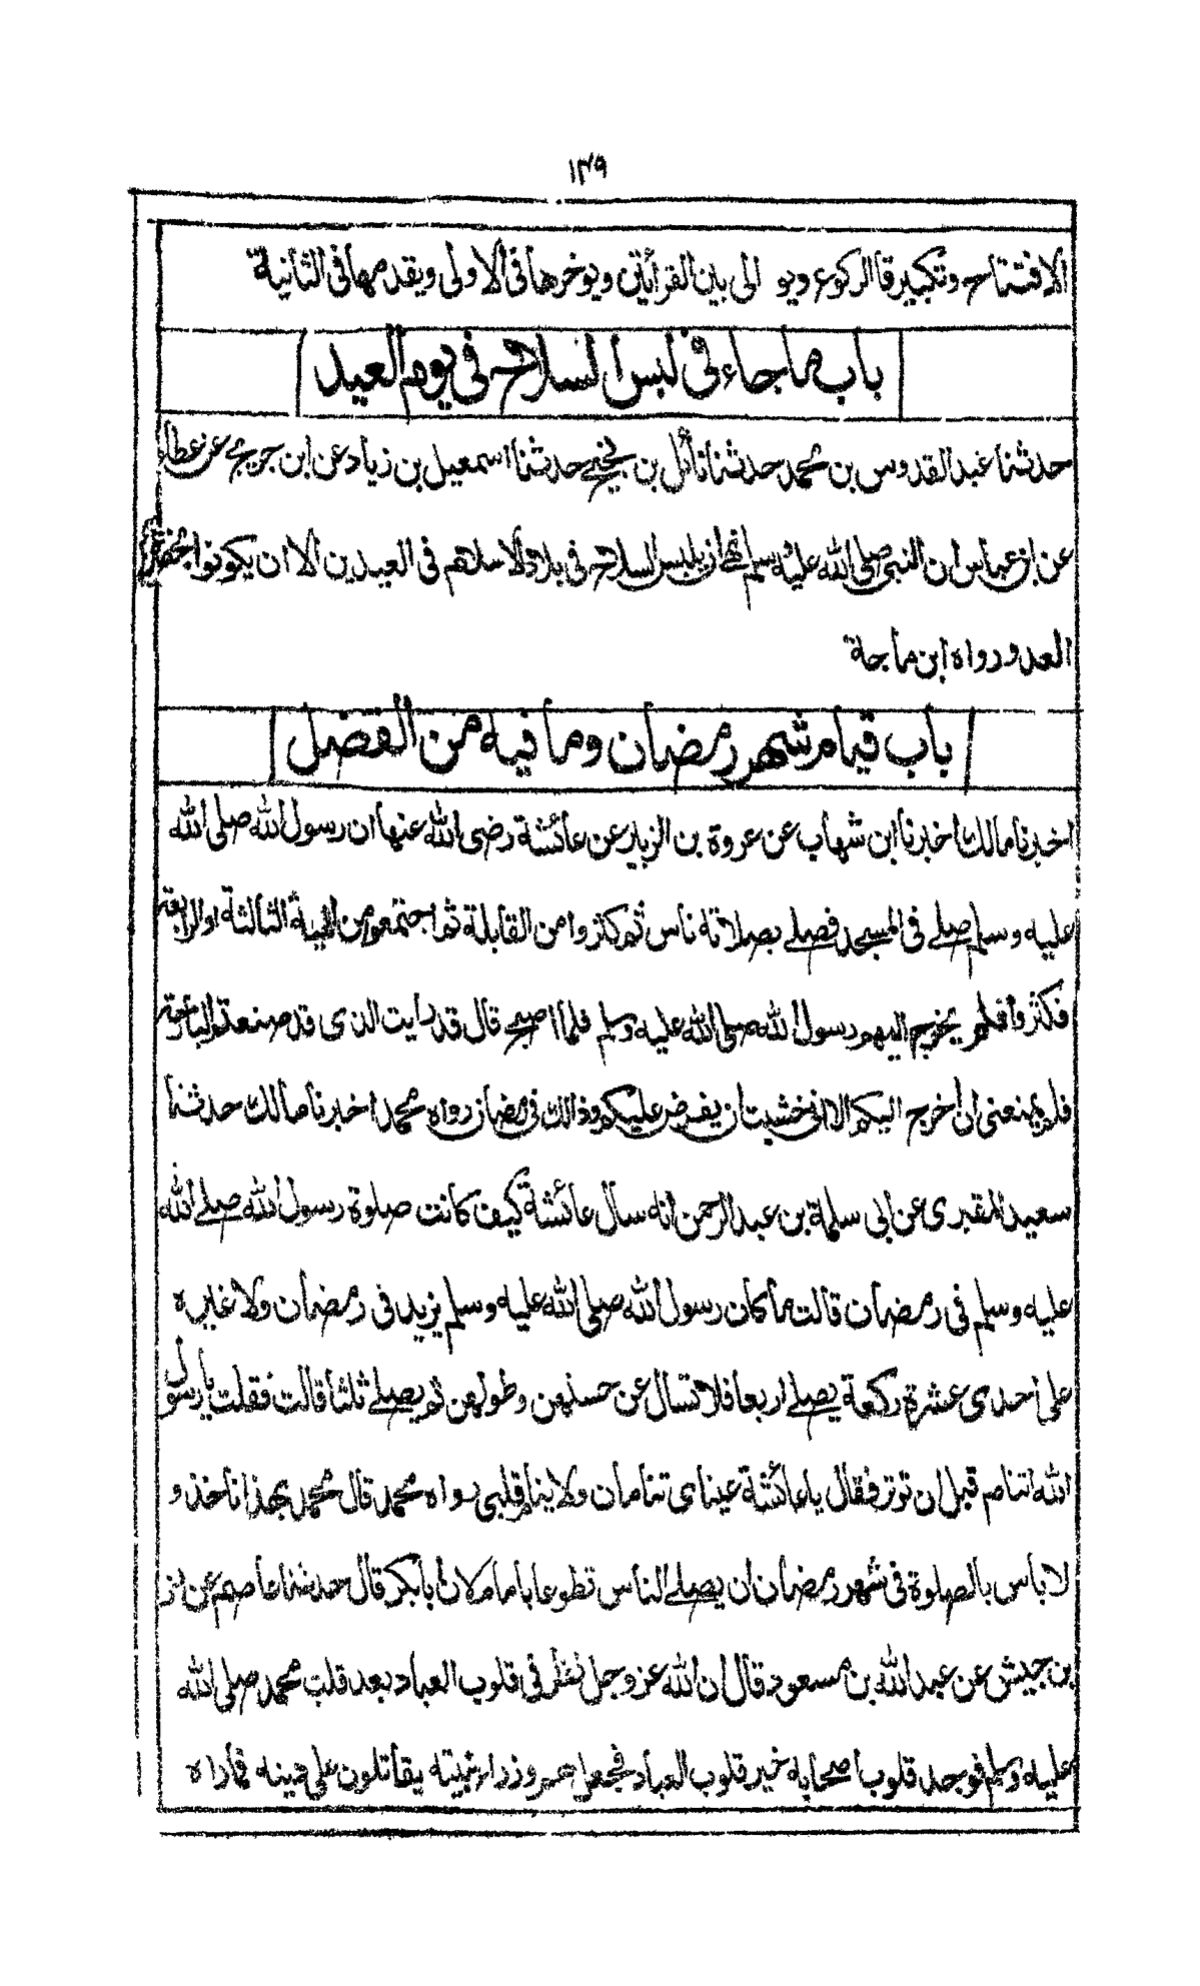 ١٣٩
الافتتاح وتكبيرة الركوع ويوالى بين القرأتين ويوخرها فى الاولى ويقدمها فى الثانية
باب ما جاء فى لبس السلاح فى يوم العيد
حدثنا عبد القدوس بن محمد حدثنا نائل بن نجيح حدثنا اسمعيل بن زياد عن ابن جريج عن عطاء
عن ابن عباس ان النبى صلى الله عليه وسلم نهى ان يلبس السلاح فى بلاد الاسلام فى العيدين الا ان يكونوا بحضرة
العدو رواه ابن ماجة
باب قيام شهر رمضان وما فيه من الفضل
اخبرنا مالك اخبرنا ابن شهاب عن عروة بن الزبير عن عائشة رضى الله عنها ان رسول الله صلى الله
عليه وسلم صلے فى المسجد فصلے بصلاته ناس ثم كثروا من القابلة ثم اجتمعوا من الليلة الثالثة او الرابعة
فكثروا فلم يخرج اليهم رسول الله صلى الله عليه وسلم فلما اصبح قال قد رايت الذى قد صنعتم البارحة
فلم يمنعنى ان اخرج اليكم الا انى خشيت ان يفرض عليكم وذالك فى رمضان رواه محمد اخبرنا مالك حدثنا
سعيد المقبرى عن ابى سلمة بن عبد الرحمن انه سأل عائشة كيف كانت صلوة رسول الله صلے الله
عليه وسلم فى رمضان قالت ما كان رسول الله صلى الله عليه وسلم يزيد فى رمضان ولا غيره
على احدى عشرة ركعة يصلے اربعا فلا تسال عن حسنهن وطولهن ثم يصلے ثلثا قالت فقلت يا رسول
الله اتنام قبل ان توتر فقال يا عائشة عيناى تنامان ولا ينام قلبى رواه محمد قال محمد بهذا ناخذ و
لا باس بالصلوة فى شهر رمضان ان يصلے الناس تطوعا بامام لان ابا بكر قال حدثنا عاصم عن زر
بن حبيش عن عبد الله بن مسعود قال ان الله عز وجل نظر فى قلوب العباد بعد قلب محمد صلى الله
عليه وسلم فوجد قلوب اصحابه خير قلوب العباد فجعلهم وزراء نبيه يقاتلون على دينه فما راه